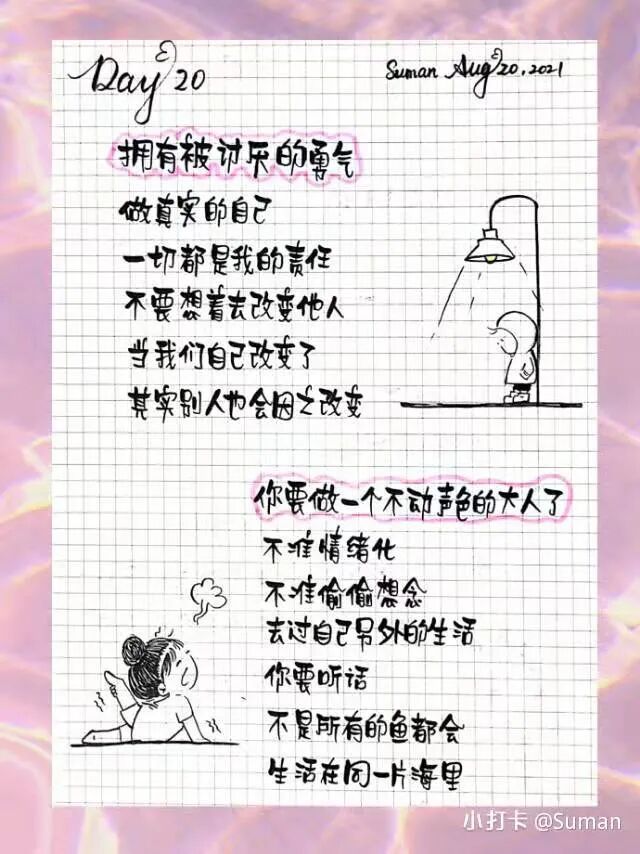 Day 20
Suman Aug 20, 2021
拥有被讨厌的勇气
做真实的自己
一切都是我的责任
不要想着去改变他人
当我们自己改变了
其实别人也会因之改变
你要做一个不动声色的大人了
不准情绪化
不准偷偷想念
去过自己另外的生活
你要听话
不是所有的鱼都会
生活在同一片海里
小打卡 @Suman